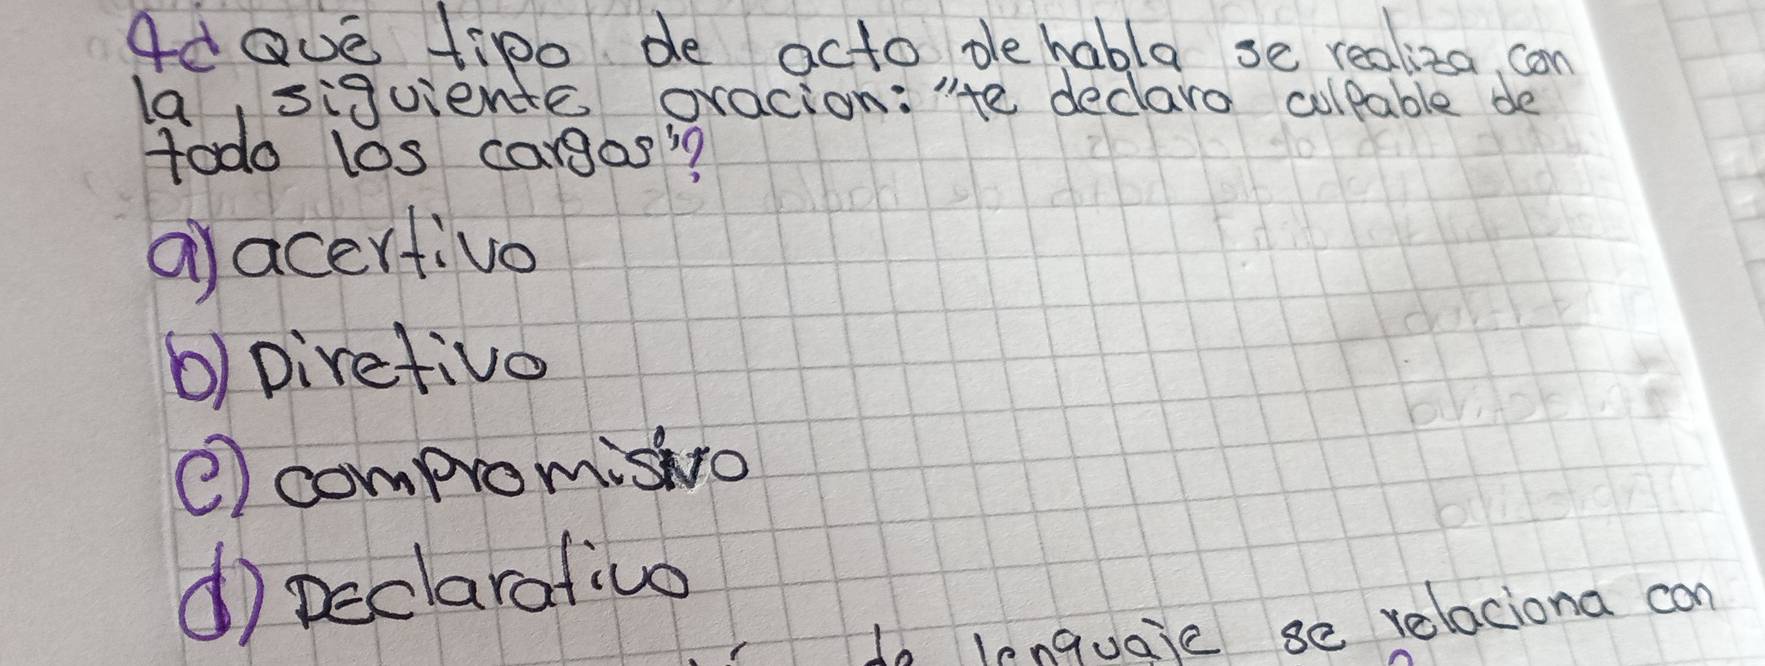 4¿ Qué tipo de acto de habla se realiza con
la siguiente oracion: "te declaro culpable de
todo los cargos"?
a) acertivo
b) Diretivo
c) compromisivo
d) Declarativo
de lenguaje se relaciona con